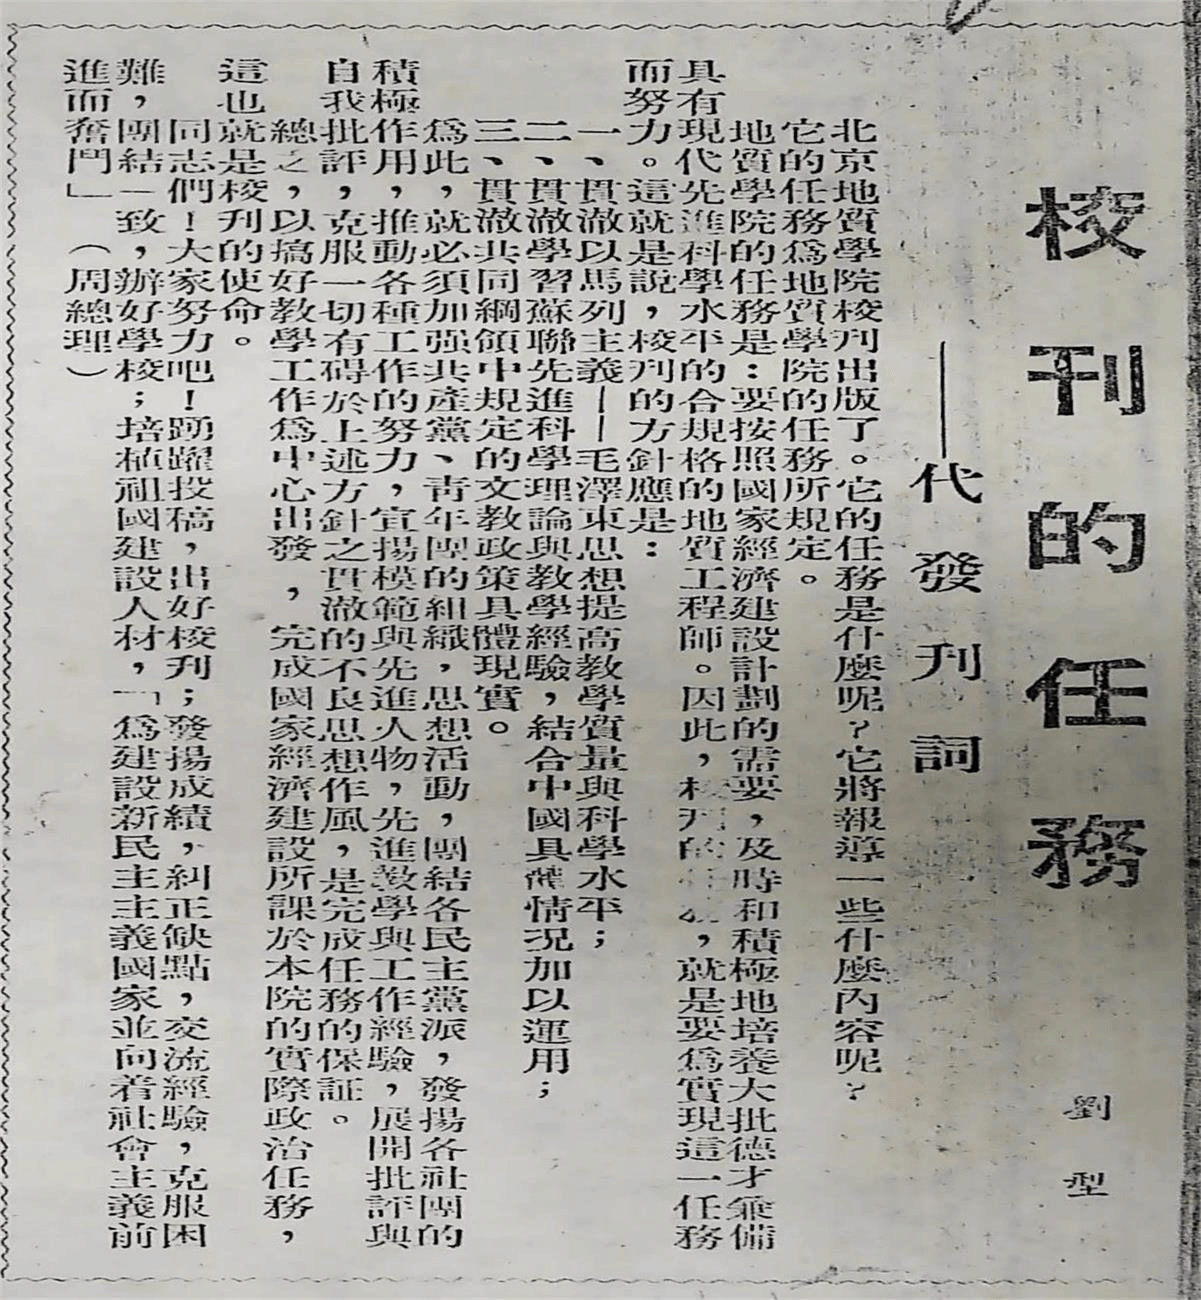 校刊的任務
劉型
——代發刊詞
北京地質學院校刊出版了。它的任務是什麼呢?它將報導一些什麼內容呢?
它的任務爲地質學院的任務所規定。
地質學院的任務是:要按照國家經濟建設計劃的需要,及時和積極地培養大批德才兼備
具有現代先進科學水平的合規格的地質工程師。因此,校刊的任務,就是要爲實現這一任務
而努力。這就是說,校刊的方針應是:
一、貫澈以馬列主義—毛澤東思想提高教學質量與科學水平;
二、貫澈學習蘇聯先進科學理論與教學經驗,結合中國具體情況加以運用;
三、貫澈共同綱領中規定的文教政策具體現實。
爲此,就必須加强共產黨、青年團的組織,思想活動,團結各民主黨派,發揚各社團的
積極作用,推動各種工作的努力,宣揚模範與先進人物,先進教學與工作經驗,展開批評與
自我批評,克服一切有碍於上述方針之貫澈的不良思想作風,是完成任務的保証。
總之,以搞好教學工作爲中心出發,完成國家經濟建設所課於本院的實際政治任務,
這也就是校刊的使命。
同志們!大家努力吧!踴躍投稿,出好校刊;發揚成績,糾正缺點,交流經驗,克服困
難,團結一致,辦好學校;培植祖國建設人材,「爲建設新民主主義國家並向着社會主義前
進而奮鬥」(周總理)